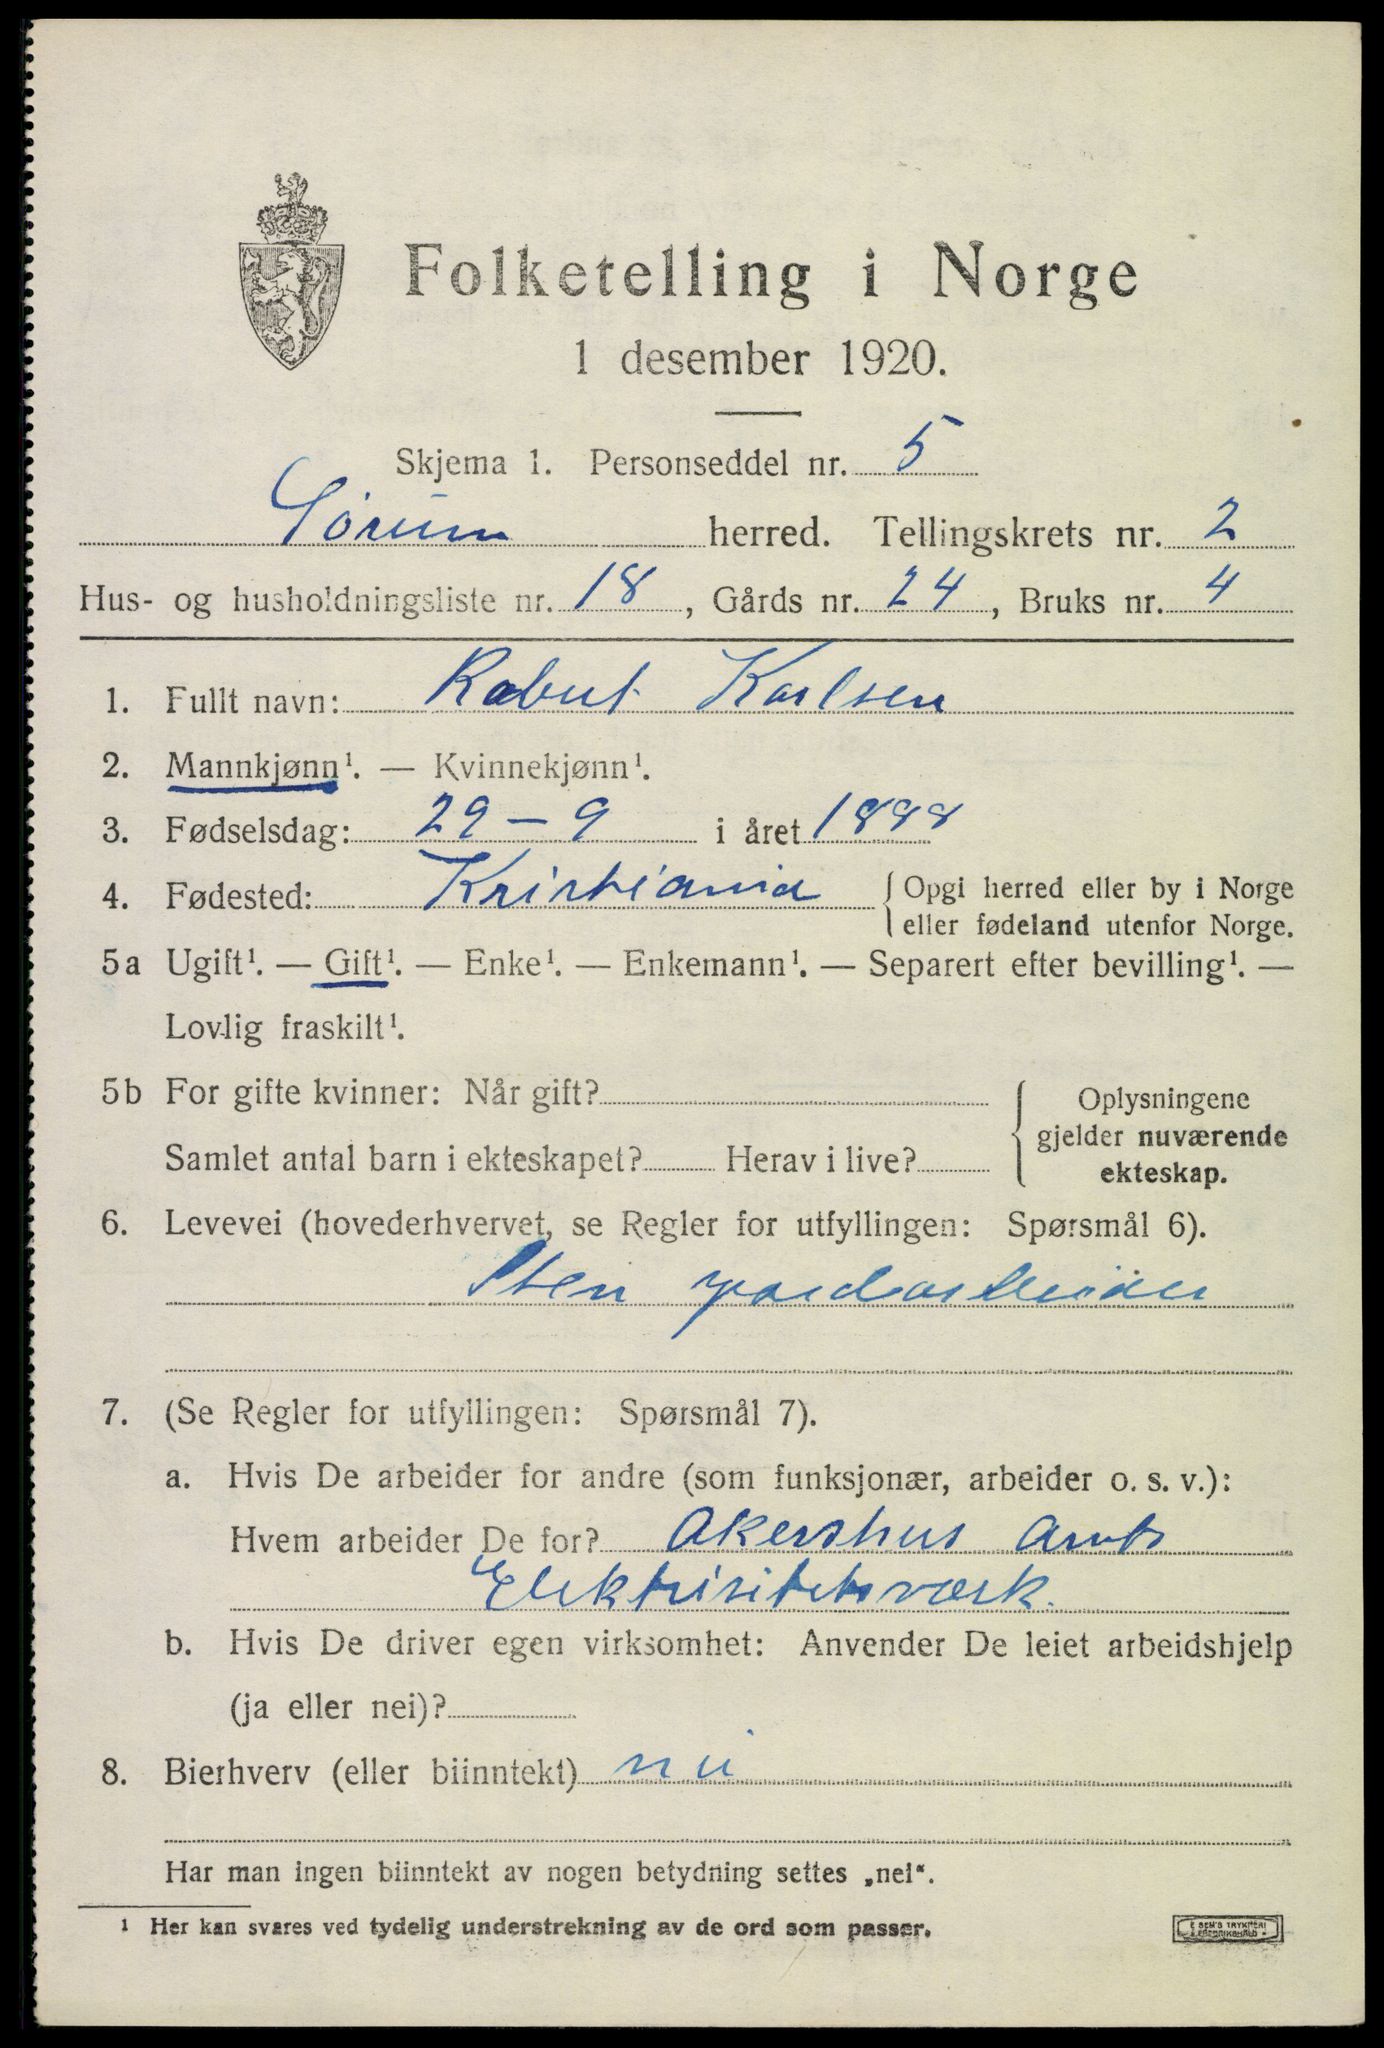 Folketelling i Norge
1 desember 1920.
Skjema 1. Personseddel nr. 5
Sørum herred. Tellingskrets nr. 2
Hus- og husholdningsliste nr. 18, Gårds nr. 24, Bruks nr. 4
1. Fullt navn: Robert Karlsen
2. Mannkjønn¹. — Kvinnekjønn¹.
3. Fødselsdag: 29 – 9 i året 1898
4. Fødested: Kristiania { Opgi herred eller by i Norge
eller fødeland utenfor Norge.
5a Ugift¹. — Gift¹. — Enke¹. — Enkemann¹. — Separert efter bevilling¹. —
Lovlig fraskilt¹.
5b For gifte kvinner: Når gift? { Oplysningene
gjelder nuværende
Samlet antal barn i ekteskapet? Herav i live?
ekteskap.
6. Levevei (hovederhvervet, se Regler for utfyllingen: Spørsmål 6).
Sten
7. (Se Regler for utfyllingen: Spørsmål 7).
a. Hvis De arbeider for andre (som funksjonær, arbeider o. s. v.):
Hvem arbeider De for? Akershus Amts
Elektrisitetsværk.
b. Hvis De driver egen virksomhet: Anvender De leiet arbeidshjelp
(ja eller nei)?
8. Bierhverv (eller biinntekt) nei
Har man ingen biinntekt av nogen betydning settes „nei“.
¹ Her kan svares ved tydelig understrekning av de ord som passer.